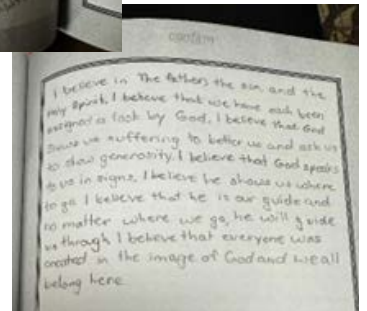 I believe in The father, the son, and the
holy spirit. I believe that we have each been
assigned a task by God. I believe that God
shows us suffering to better us and ask us
to show generosity. I believe that God speaks
to us in signs, I believe he shows us where
to go I believe that he is our guide and
no matter where we go, he will guide
us through I believe that everyone was
created in the image of God and we all
belong here